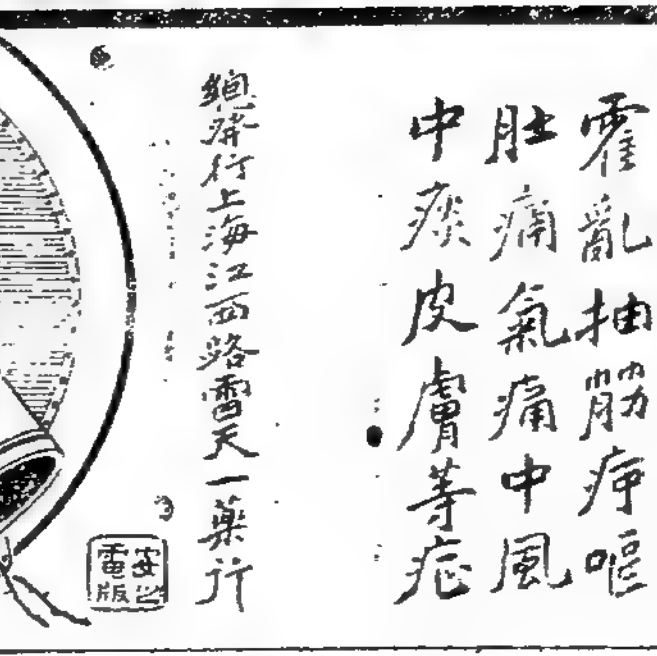 霍亂抽筋疴嘔
肚痛氣痛中風
中痰皮膚等症
總發行上海江西路雷天一藥行
安
電版